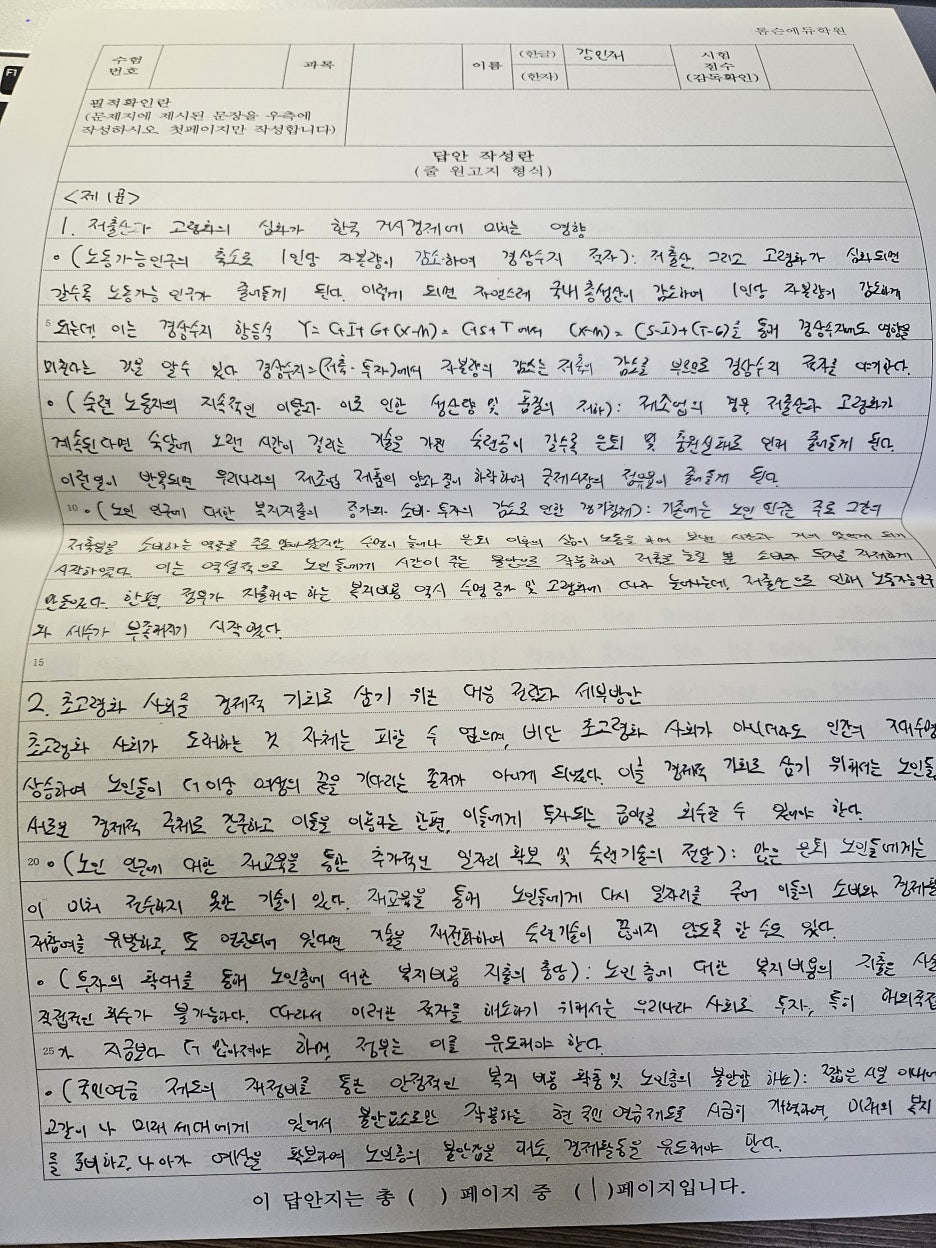 톰슨에듀학원
수험번호 과목 이름 (한글) 강인재 (한자) 시험점수 (감독확인)
필적확인란
(문제지에 제시된 문장을 우측에
작성하시오. 첫페이지만 작성합니다)
답안 작성란
(줄 원고지 형식)
<제 1문>
1. 저출산과 고령화의 심화가 한국 거시경제에 미치는 영향
• (노동가능인구의 축소로 1인당 자본량이 감소하여 경상수지 적자): 저출산, 그리고 고령화가 심화되면
갈수록 노동가능 인구가 줄어들게 된다. 이렇게 되면 자연스레 국내총생산이 감소하여 1인당 자본량이 감소하게
5 되는데, 이는 경상수지 항등식 Y=C+I+G+(X-M)=C+S+T에서 (X-M)=(S-I)+(T-G)를 통해 경상수지에도 영향을
미친다는 것을 알 수 있다. 경상수지=(저축-투자)에서 자본량의 감소는 저축의 감소를 부르므로 경상수지 적자를 야기한다.
• (숙련 노동자의 지속적인 이탈과 이로 인한 생산량 및 품질의 저하): 제조업의 경우 저출산과 고령화가
계속된다면 숙달에 오랜 시간이 걸리는 기술을 가진 숙련공이 갈수록 은퇴 및 충원실패로 인해 줄어들게 된다.
이런 일이 반복되면 우리나라의 제조업 제품의 양과 질이 하락하여 국제시장의 점유율이 줄어들게 된다.
10 • (노인 인구에 대한 복지지출의 증가와 소비·투자의 감소로 인한 경기침체): 기존에는 노인 인구는 주로 그간의
저축분을 소비하는 역할을 주로 맡아 왔지만, 수명이 늘어나 은퇴 이후의 삶이 노동을 하며 보낸 시간과 거의 맞먹게 되기
시작하였다. 이는 역설적으로 노인들에게 시간이 주는 불안으로 작용하여 저축을 늘릴 뿐 소비와 투자를 자제하게
만들었다. 한편, 정부가 지출해야 하는 복지비용 역시 수명 증가 및 고령화에 따라 늘어나는데, 저출산으로 인해 노동가능인구
와 세수가 부족해지기 시작했다.
15
2. 초고령화 사회를 경제적 기회로 삼기 위한 대응 전략과 세부방안
초고령화 사회가 도래하는 것 자체는 피할 수 없으며, 비단 초고령화 사회가 아니더라도 인간의 기대수명
상승하여 노인들이 더 이상 여생의 끝을 기다리는 존재가 아니게 되었다. 이를 경제적 기회로 삼기 위해서는 노인들
새로운 경제적 주체로 간주하고 이들을 이용하는 한편, 이들에게 투자되는 금액을 회수할 수 있어야 한다.
20 • (노인 인구에 대한 재교육을 통한 추가적인 일자리 확보 및 숙련기술의 전달): 많은 은퇴 노인들에게는
이 미처 전수하지 못한 기술이 있다. 재교육을 통해 노인들에게 다시 일자리를 주어 이들의 소비와 경제활
재참여를 유발하고, 또 연관되어 있다면 기술을 재전파하여 숙련기술이 끊이지 않도록 할 수도 있다.
• (투자의 확대를 통해 노인층에 대한 복지비용 지출의 충당): 노인층에 대한 복지비용의 지출은 사실
직접적인 회수가 불가능하다. 따라서 이러한 적자를 해소하기 위해서는 우리나라 사회로 투자, 특히 해외직접
25 가 지금보다 더 많아져야 하며, 정부는 이를 유도해야 한다.
• (국민연금 제도의 재정비를 통한 안정적인 복지 비용 확충 및 노인층의 불안감 해소): 짧은 시일 이내에
고갈이 나 미래 세대에게 있어서 불안요소로만 작용하는 현 국민 연금제도를 시급히 개혁하여, 미래의 복지
를 준비하고, 나아가 예산을 확보하여 노인층의 불안감을 해소, 경제활동을 유도해야 한다.
이 답안지는 총 ( ) 페이지 중 (1)페이지입니다.